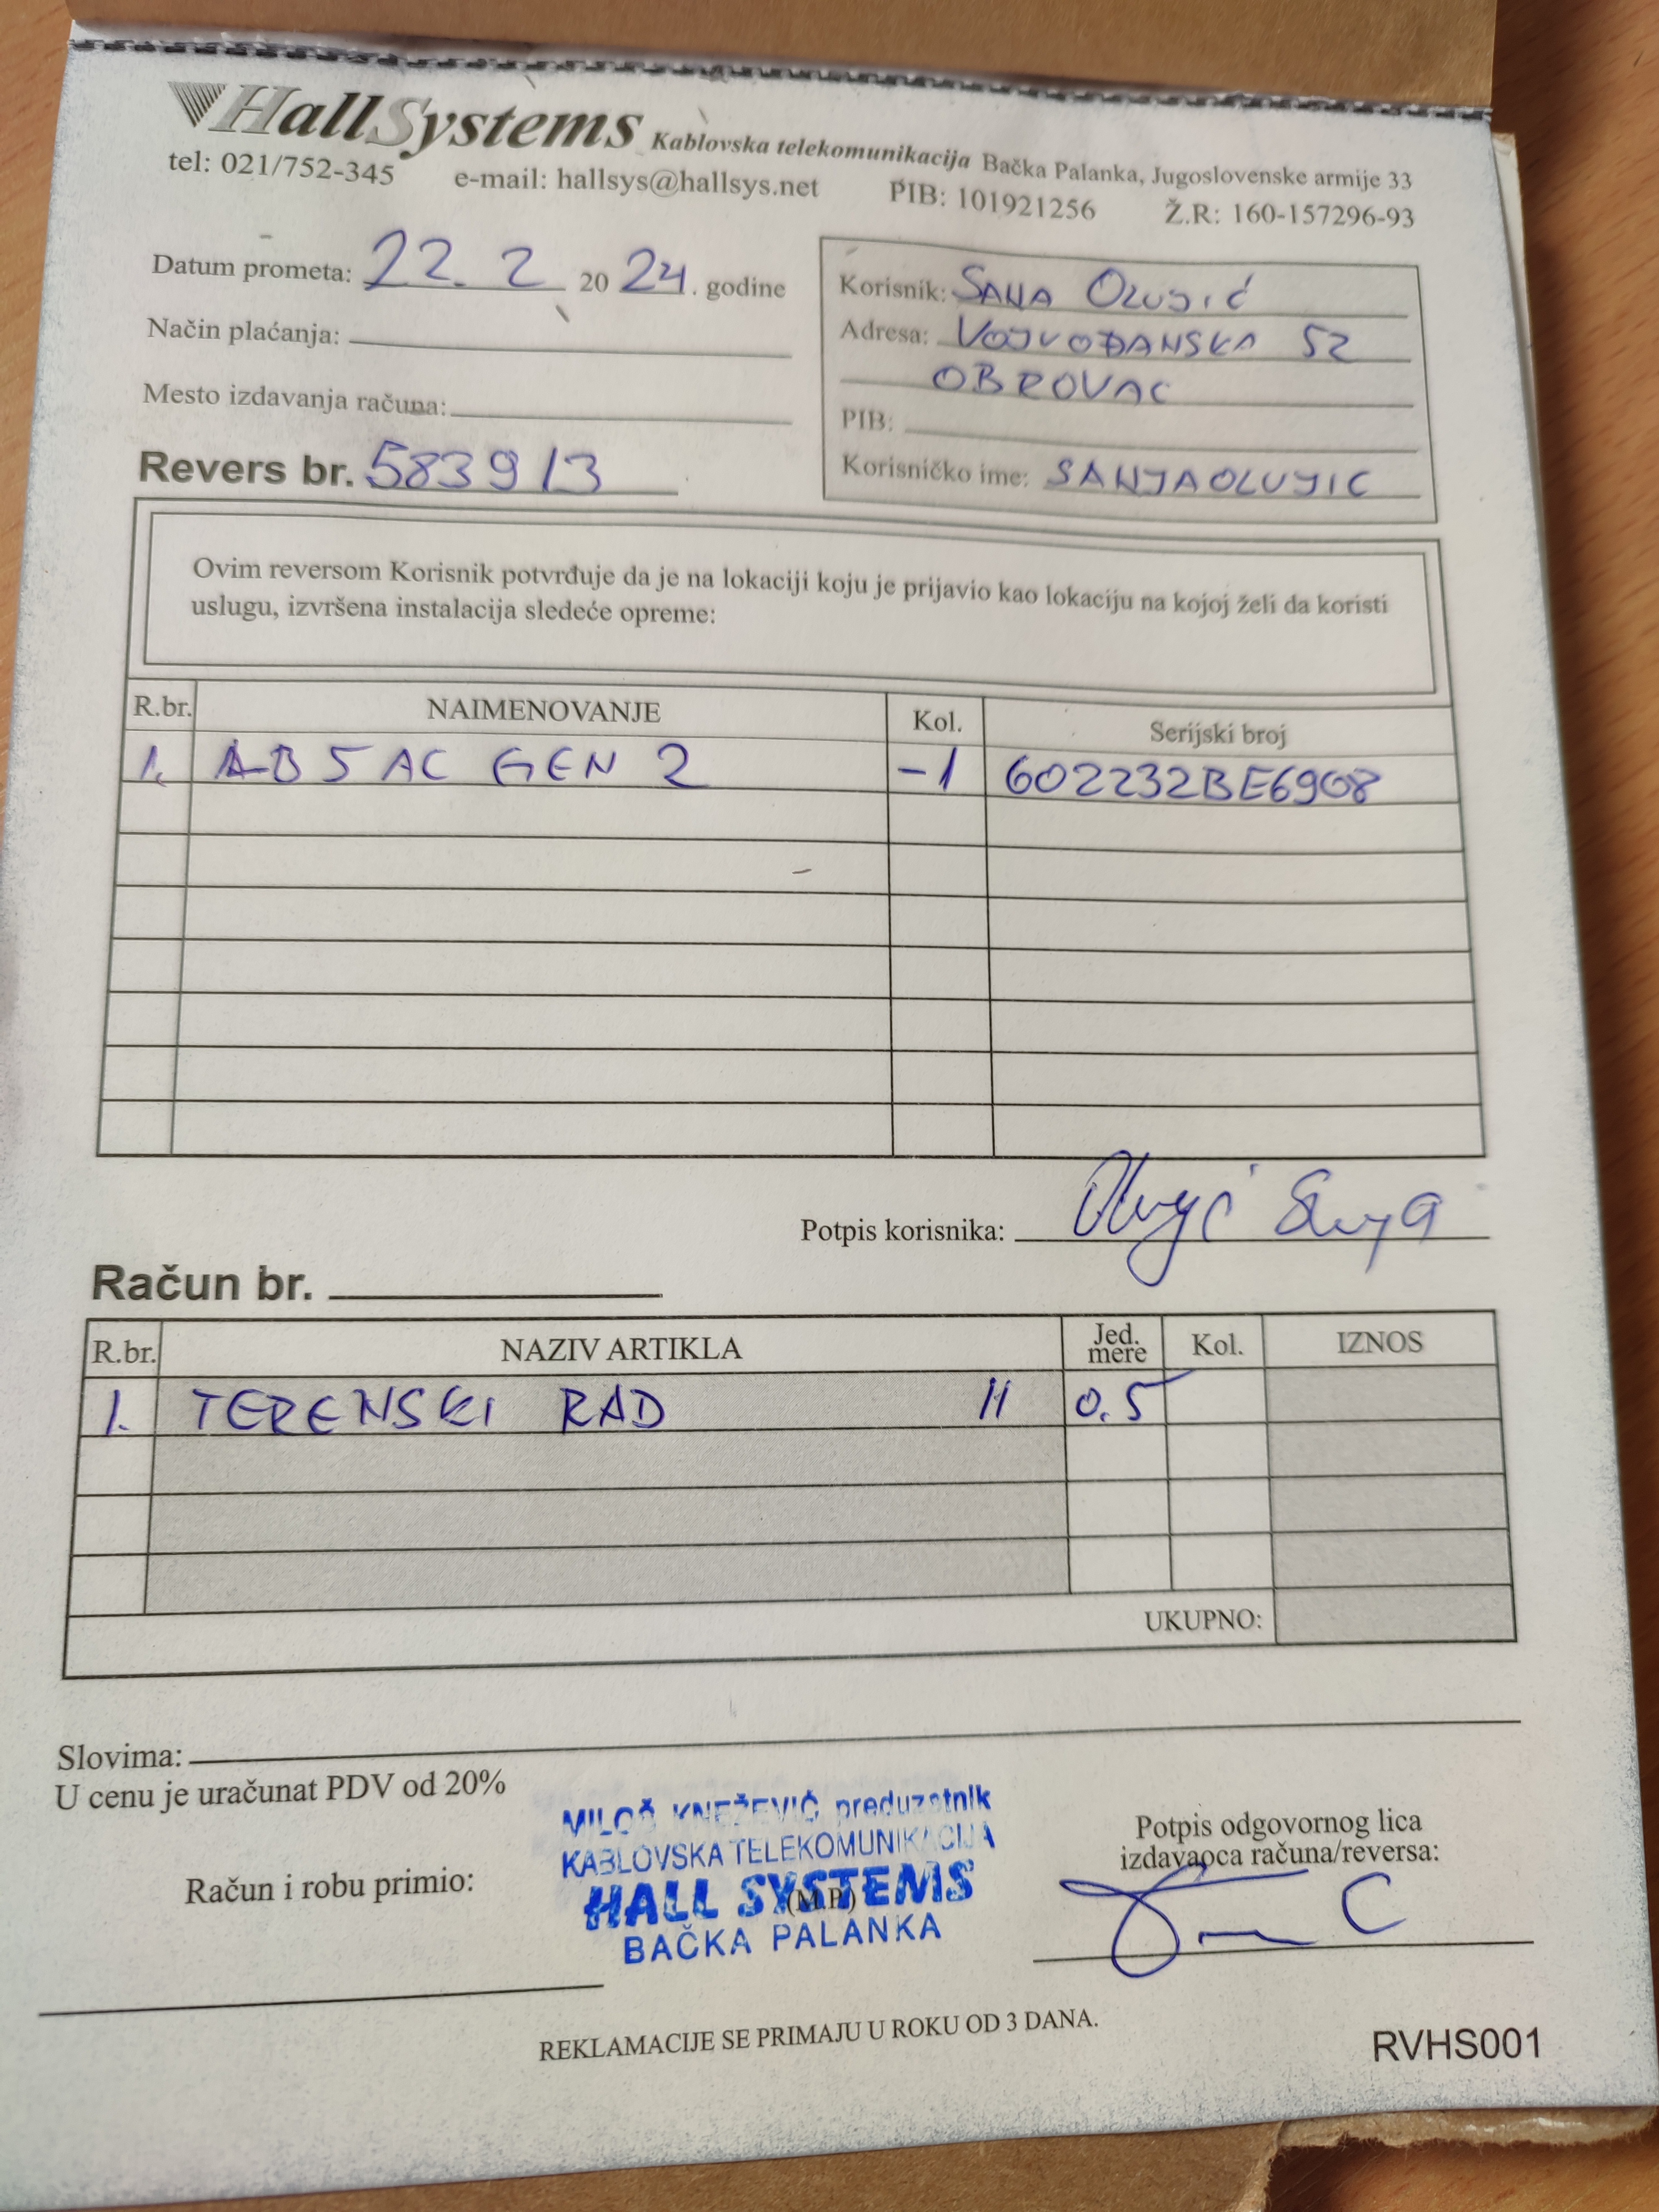 HallSystems Kablovska telekomunikacija Bačka Palanka, Jugoslovenske armije 33
tel: 021/752-345 e-mail: hallsys@hallsys.net PIB: 101921256 Ž.R: 160-157296-93
Datum prometa: 22. 2 20 24. godine
Način plaćanja:
Mesto izdavanja računa:
Revers br. 583913
Korisnik: SANA OLUJIĆ
Adresa: VOJVOĐANSKA 52
OBROVAC
PIB:
Korisničko ime: SANJAOLUJIC
Ovim reversom Korisnik potvrđuje da je na lokaciji koju je prijavio kao lokaciju na kojoj želi da koristi
uslugu, izvršena instalacija sledeće opreme:
R.br. NAIMENOVANJE Kol. Serijski broj
1. AB 5 AC GEN 2 -1 602232BE6908
Potpis korisnika: Olujić Sanja
Račun br.
R.br. NAZIV ARTIKLA Jed. mere Kol. IZNOS
1. TERENSKI RAD H 0.5
UKUPNO:
Slovima:
U cenu je uračunat PDV od 20%
MILOŠ KNEŽEVIĆ preduzetnik
KABLOVSKA TELEKOMUNIKACIJA
HALL SYSTEMS
(M.P.)
BAČKA PALANKA
Račun i robu primio:
Potpis odgovornog lica
izdavaoca računa/reversa:
REKLAMACIJE SE PRIMAJU U ROKU OD 3 DANA.
RVHS001